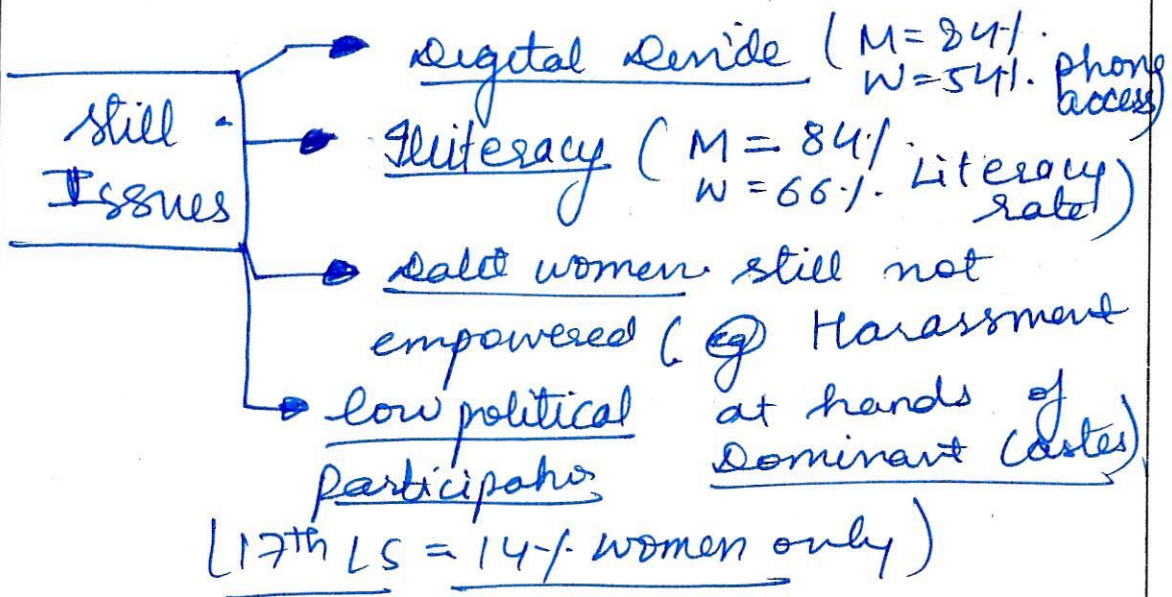 Still Issues
Digital Devide ( M = 84%. W = 54%. phone access)
Illiteracy ( M = 84%. W = 66%. Literacy rate)
Dalit women still not
empowered ( eg Harassment
at hands of
Dominant Castes)
low political
Participation
(17th LS = 14% women only)